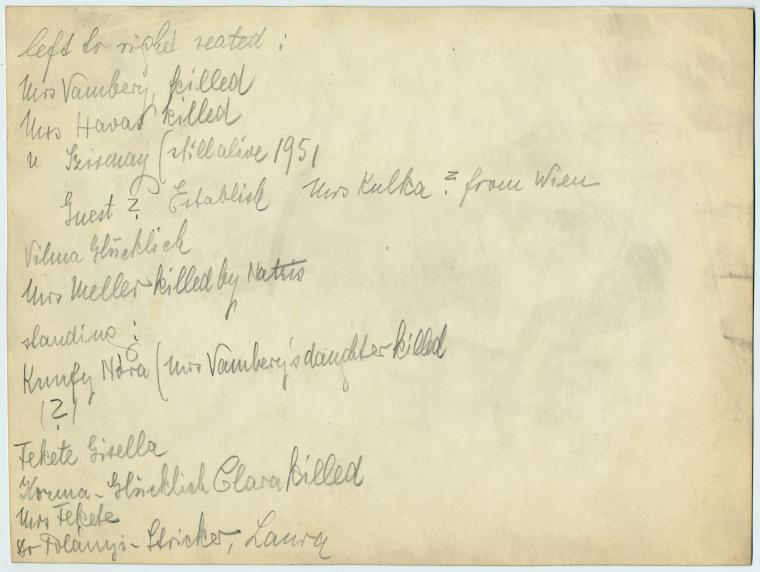 left to right seated :
Mrs Vambery, killed
Mrs Havas killed
" Szirmay (still alive 1951
Guest ? Establish Mrs Kulka ? from Wien
Vilma Glücklich
Mrs Meller killed by Nazis
standing :
Kunfy Nóra (Mrs Vambery's daughter killed
(?)
Fekete Gisella
Glücklich Clara killed
Mrs Fekete
Dr Polányi - Stricker, Laura